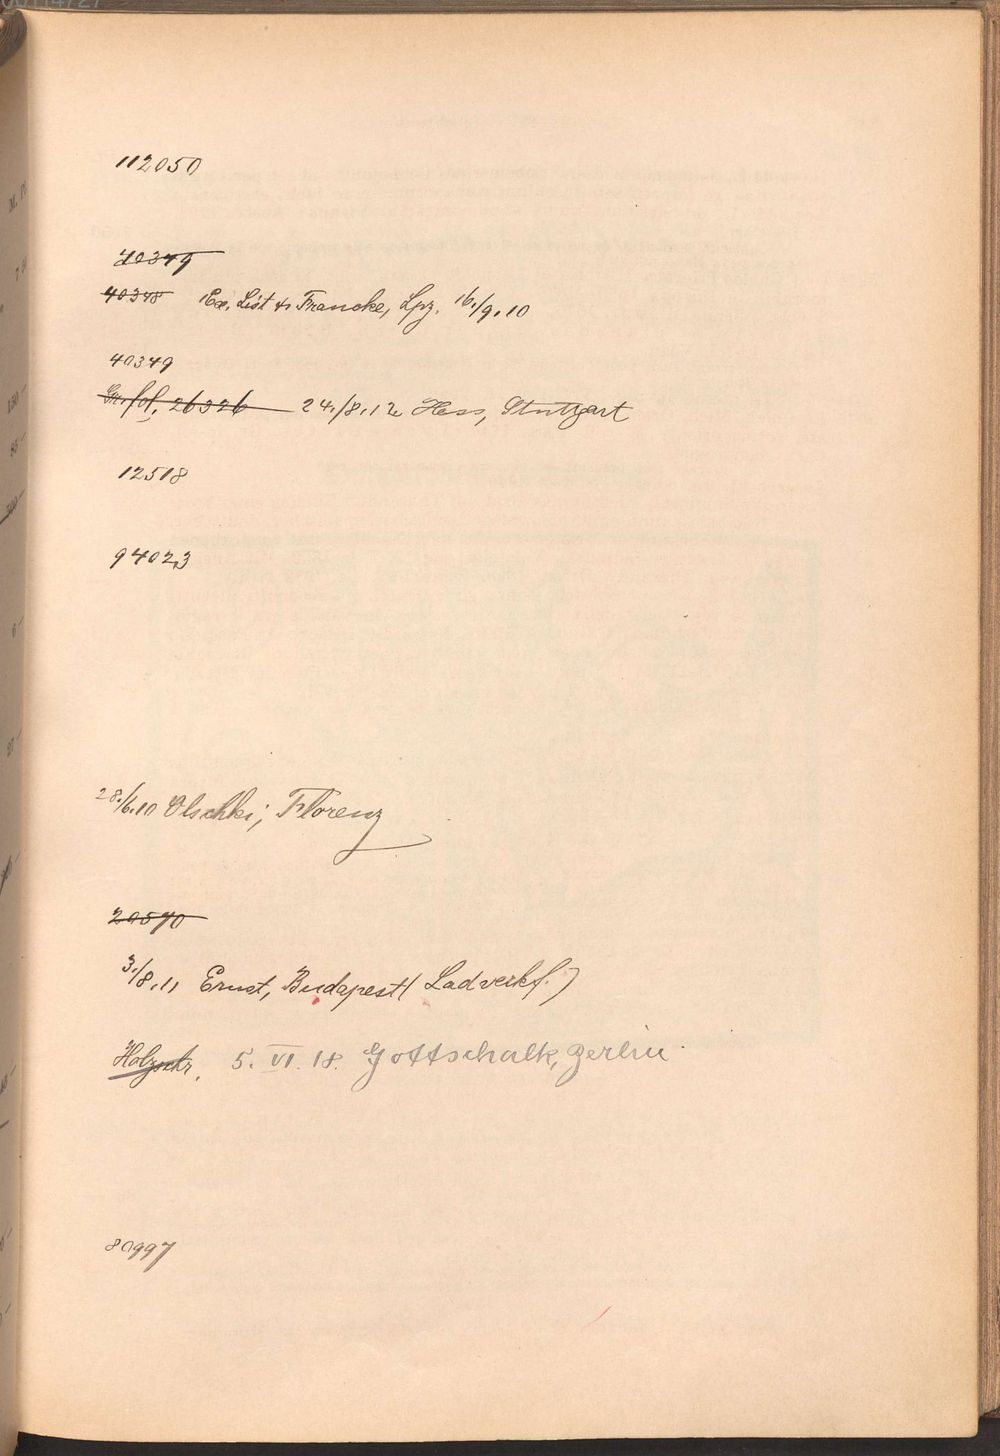 112050
40349
40348 1 Ex. List & Francke, Lpz. 16./9.10
40349
Gr. fol. 26326 24./8.12 Hess, Stuttgart
12518
94023
28./6.10 Olschki, Florenz
20570
3./8.11 Ernst, Budapest (Ladverkf.)
Holzschr. 5. VI. 18. Gottschalk, Berlin
80997